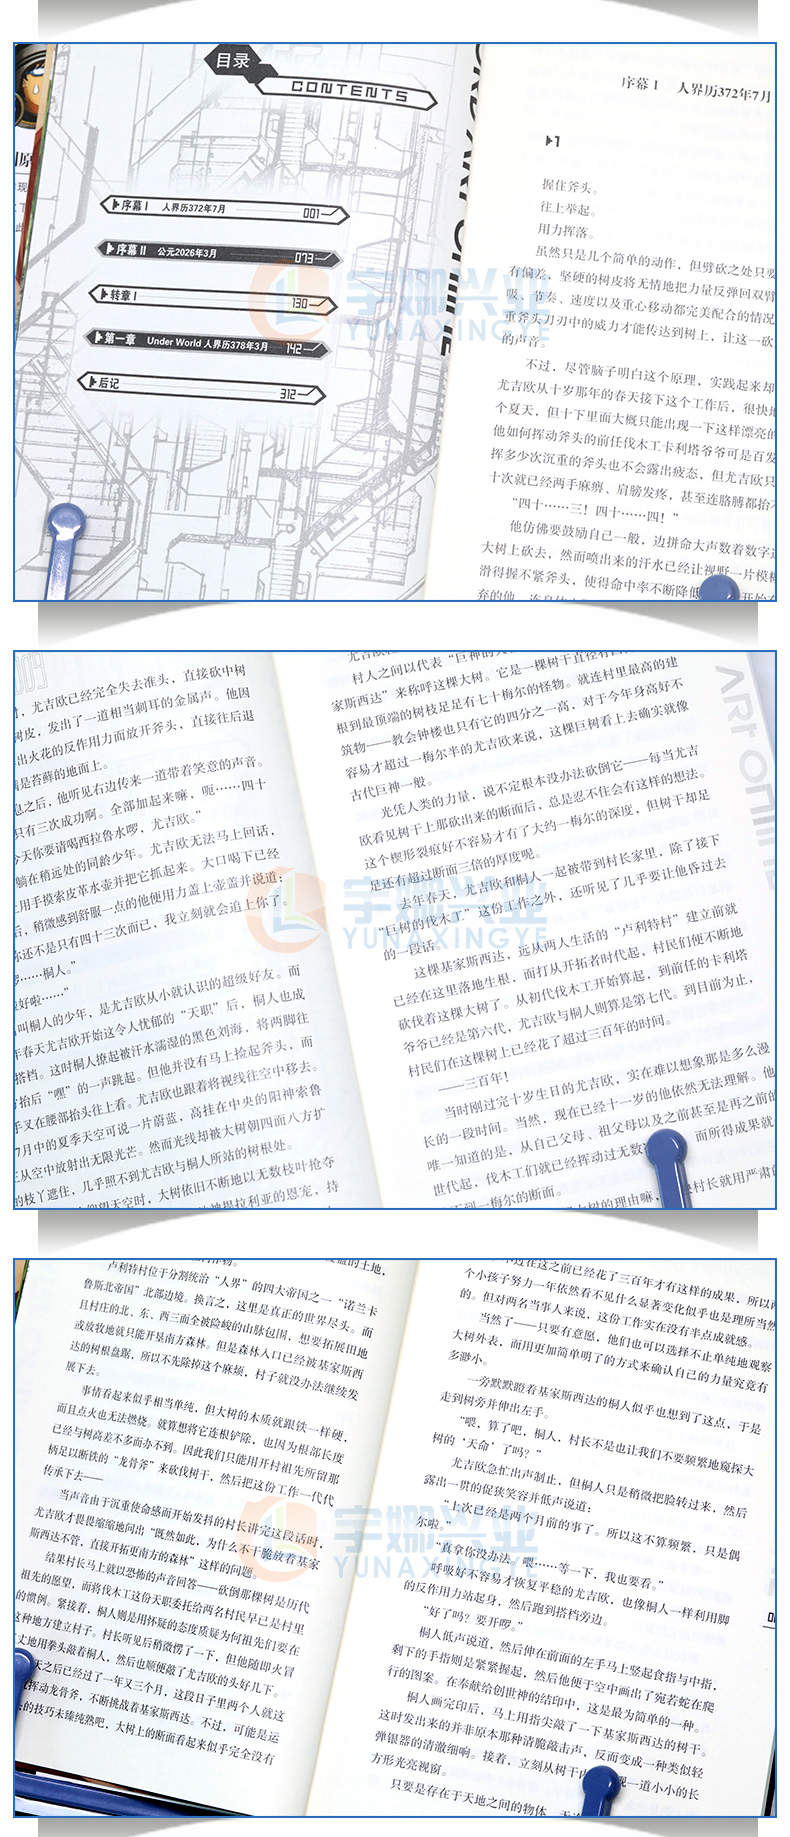 目录
CONTENTS
序幕 I 人界历372年7月 001
序幕 II 公元2026年3月 073
转章 I 130
第一章 Under World 人界历378年3月 142
后记 312
序幕 I 人界历372年7月
1
握住斧头。
往上举起。
用力挥落。
虽然只是几个简单的动作，但劈砍之处只要
有偏差，坚硬的树皮将无情地把力量反弹回双臂
吸、节奏、速度以及重心移动都完美配合的情况
重斧头刀刃中的威力才能传达到树上，让这一砍
的声音。
不过，尽管脑子明白这个原理，实践起来却
尤吉欧从十岁那年的春天接下这个工作后，很快地
个夏天，但十下里面大概只能出现一下这样漂亮的
他如何挥动斧头的前任伐木工卡利塔爷爷可是百发
挥多少次沉重的斧头也不会露出疲态，但尤吉欧只
十次就已经两手麻痹、肩膀发疼，甚至连胳膊都抬不
“四十……三！四十……四！”
他仿佛要鼓励自己一般，边拼命大声数着数字边
大树上砍去，然而喷出来的汗水已经让视野一片模糊
滑得握不紧斧头，使得命中率不断降低
宇娜兴业
YUNAXINGYE
，尤吉欧已经完全失去准头，直接砍中树
树皮，发出了一道相当刺耳的金属声。他因
出火花的反作用力而放开斧头，直接往后退
满是苔藓的地面上。
息之后，他听见右边传来一道带着笑意的声音。
只有三次成功啊。全部加起来嘛，呃……四十
今天你要请喝西拉鲁水啰，尤吉欧。”
躺在稍远处的同龄少年。尤吉欧无法马上回话，
用手摸索皮革水壶并把它抓起来。大口喝下已经
后，稍微感到舒服一点的他使用力盖上壶盖并说道：
你还不是只有四十三次而已，我立刻就会追上你了。
……桐人。”
好啦……”
叫桐人的少年，是尤吉欧从小就认识的超级好友。而
年春天尤吉欧开始这令人忧郁的“天职”后，桐人也成
搭档。这时桐人撩起被汗水濡湿的黑色刘海，将两脚往
抬后“嘿”的一声跳起。但他并没有马上捡起斧头，而
手叉在腰部抬头往上看。尤吉欧也跟着将视线往空中移去。
7月中的夏季天空可说一片蔚蓝，高挂在中央的阳神索鲁
从空中放射出无限光芒。然而光线却被大树朝四面八方扩
的枝丫遮住，几乎照不到尤吉欧与桐人所站的树根处。
仰望天空时，大树依旧不断地以无数枝叶抢夺
村人之间以代表“巨神的大
家斯西达”来称呼这棵大树。它是一棵树干直径有四
根到最顶端的树枝足足有七十梅尔的怪物。就连村里最高的建
筑物——教会钟楼也只有它的四分之一高，对于今年身高好不
容易才超过一梅尔半的尤吉欧来说，这棵巨树看上去确实就像
古代巨神一般。
光凭人类的力量，说不定根本没办法砍倒它——每当尤吉
欧看见树干上那砍出来的断面后，总是忍不住会有这样的想法。
这个楔形裂痕好不容易才有了大约一梅尔的深度，但树干却足
足还有超过断面三倍的厚度呢。
去年春天，尤吉欧和桐人一起被带到村长家里，除了接下
“巨树的伐木工”这份工作之外，还听见了几乎要让他昏过去
的一段话。
这棵基家斯西达，远从两人生活的“卢利特村”建立前就
已经在这里落地生根，而打从开拓者时代起，村民们便不断地
砍伐着这棵大树了。从初代伐木工开始算起，到前任的卡利塔
爷爷已经是第六代，尤吉欧与桐人则算是第七代。到目前为止，
村民们在这棵树上已经花了超过三百年的时间。
——三百年！
当时刚过完十岁生日的尤吉欧，实在难以想象那是多么漫
长的一段时间。当然，现在已经十一岁的他依然无法理解。他
唯一知道的是，从自己父母、祖父母以及之前甚至是再之前的
世代起，伐木工们就已经挥动过无数 而所得成果就
不到一梅尔的断面。
大树的理由嘛， 村长就用严肃的
宇娜兴业
YUNAXINGYE
卢利特村位于分割统治“人界”的四大帝国之一“诺兰卡
鲁斯北帝国”北部边境。换言之，这里是真正的世界尽头。而
且村庄的北、东、西三面全被险峻的山脉包围，想要拓展田地
或放牧地就只能开垦南方森林。但是森林入口已经被基家斯西
达的树根盘踞，所以不先除掉这个麻烦，村子就没办法继续发
展下去。
事情看起来似乎相当单纯，但大树的木质就跟铁一样硬，
而且点火也无法燃烧。就算想将它连根铲除，也因为根部长度
已经与树高差不多而办不到。因此我们只能用开村祖先所留那
柄足以断铁的“龙骨斧”来砍伐树干，然后把这份工作一代代
传承下去——
当声音由于沉重使命感而开始发抖的村长讲完这段话时，
尤吉欧才畏畏缩缩地问出“既然如此，为什么不干脆放着基家
斯西达不管，直接开拓更南方的森林”这样的问题。
结果村长马上就以恐怖的声音回答——砍倒那棵树是历代
祖先的愿望，而将伐木工这份天职委托给两名村民早已是村里
的惯例。紧接着，桐人则是用怀疑的态度质疑为何祖先们要在
这种地方建立村子。村长听见后稍微愣了一下，但他随即火冒
丈地用拳头敲着桐人，然后也顺便敲了尤吉欧的头好几下。
天之后已经过了一年又三个月，这段日子里两个人就这
挥动龙骨斧，不断挑战着基家斯西达。不过，可能是运
的技巧未臻纯熟吧，大树上的断面看起来似乎完全没有
过在这之前已经花了三百年才有这样的成果，所以两
个小孩子努力一年依然看不见什么显著变化似乎也是理所当然
的。但对两名当事人来说，这份工作实在没有半点成就感。
当然了——只要有意愿，他们也可以选择不止单纯地观察
大树外表，而用更加简单明了的方式来确认自己的力量究竟有
多渺小。
一旁默默瞪着基家斯西达的桐人似乎也想到了这点，于是
走到树旁并伸出左手。
“喂，算了吧，桐人，村长不是也让我们不要频繁地窥探大
树的‘天命’了吗？”
尤吉欧急忙出声制止，但桐人只是稍微把脸转过来，然后
露出一贯的促狭笑容并低声说道：
“上次已经是两个月前的事了。所以这不算频繁，只是偶
尔啦。”
“真拿你没办法。喂……等一下，我也要看。”
呼吸好不容易才恢复平稳的尤吉欧，也像桐人一样利用脚
的反作用力站起身，然后跑到搭档旁边。
“好了吗？要开啰。”
桐人低声说道，然后伸在前面的左手马上竖起食指与中指，
剩下的手指则是紧紧握起，然后他便于空中画出了宛若蛇在爬
行的图案。在奉献给创世神的结印中，这是最为简单的一种。
桐人画完印后，马上用指尖敲了一下基家斯西达的树干。
这时发出来的并非原本那种清脆敲击声，反而变成一种类似轻
弹银器的清澈细响。接着，立刻从树干内 现一道小小的长
方形光亮视窗。
只要是存在于天地之间的物体，无
宇娜兴业
YUNAXINGYE